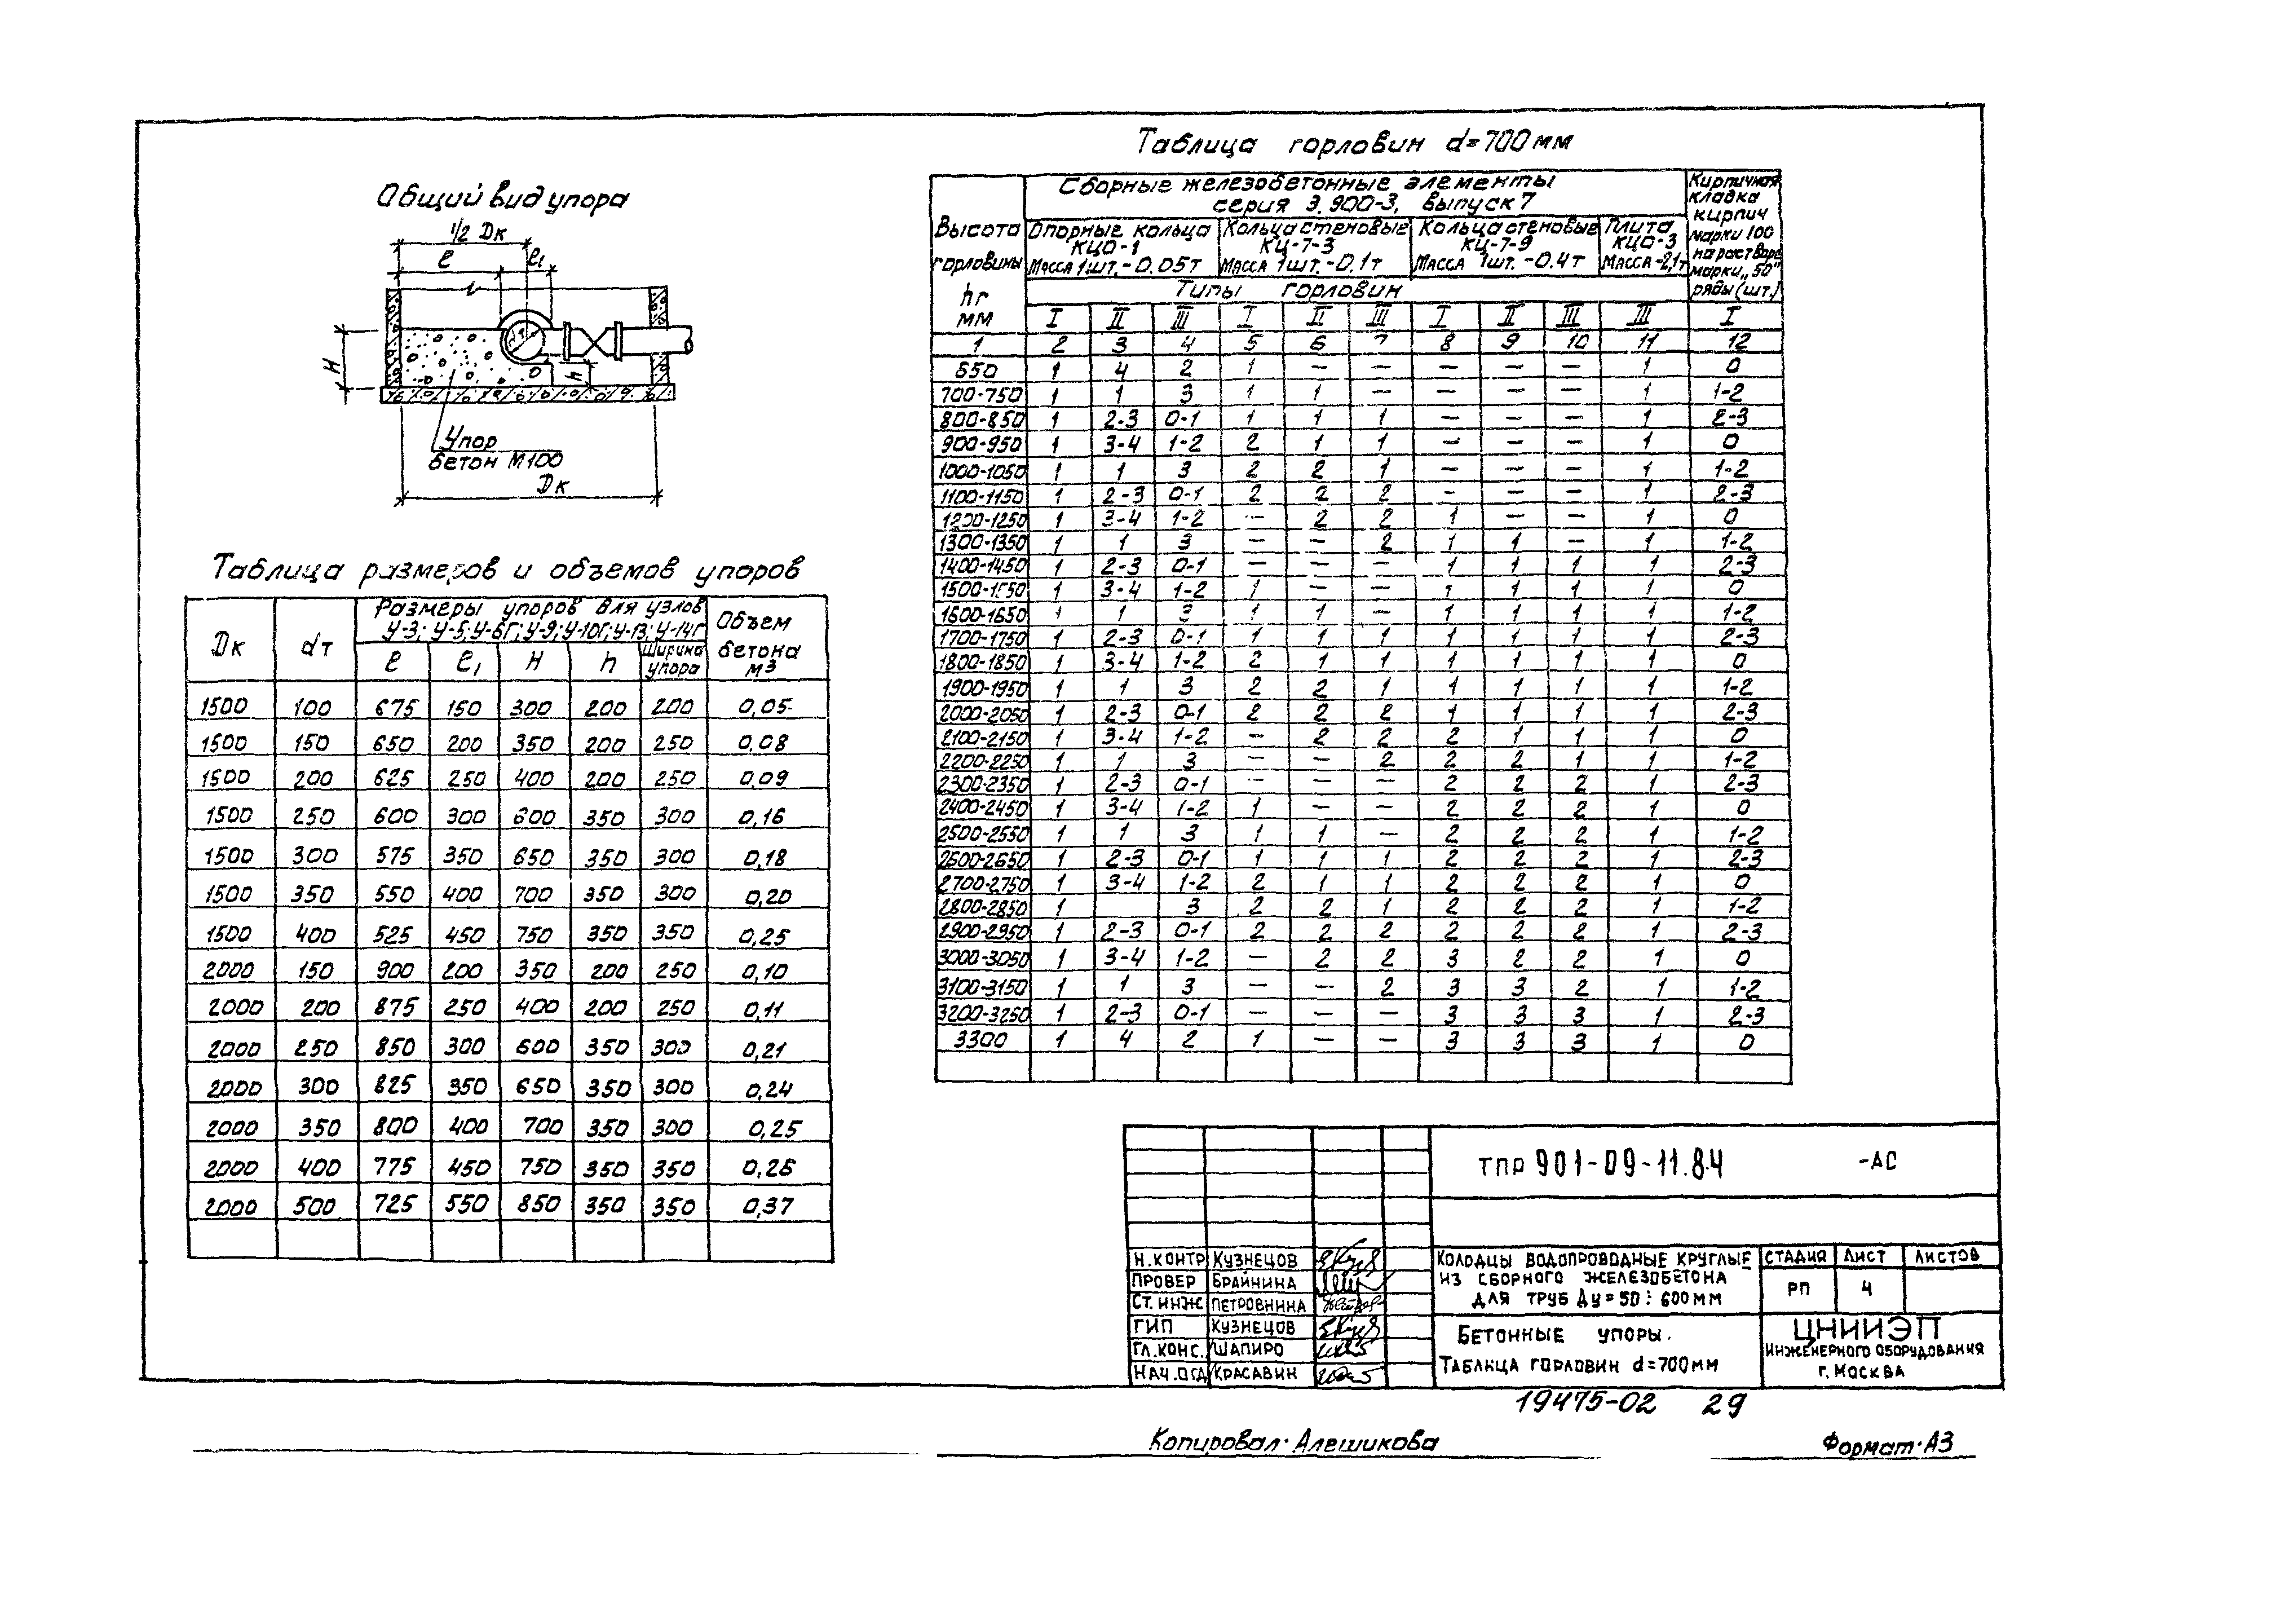 Общий вид упора
1/2 Dк
ℓ ℓ₁
H
h
Упор
бетон М100
Dк
Таблица размеров и объемов упоров
Dк dт Размеры упоров для узлов У-3; У-5; У-6Г; У-9; У-10Г; У-13; У-14Г Объем бетона м3
ℓ ℓ₁ H h Ширина упора
1500 100 675 150 300 200 200 0,05
1500 150 650 200 350 200 250 0,08
1500 200 625 250 400 200 250 0,09
1500 250 600 300 600 350 300 0,16
1500 300 575 350 650 350 300 0,18
1500 350 550 400 700 350 300 0,20
1500 400 525 450 750 350 350 0,25
2000 150 900 200 350 200 250 0,10
2000 200 875 250 400 200 250 0,11
2000 250 850 300 600 350 300 0,21
2000 300 825 350 650 350 300 0,24
2000 350 800 400 700 350 300 0,25
2000 400 775 450 750 350 350 0,26
2000 500 725 550 850 350 350 0,37
Таблица горловин d=700 мм
Высота горловины hг мм
Сборные железобетонные элементы
серия 3.900-3, выпуск 7
Опорные кольца КЦО-1 Масса 1шт.-0.05т
Кольца стеновые КЦ-7-3 Масса 1шт.-0.1т
Кольца стеновые КЦ-7-9 Масса 1шт.-0.4т
Плита КЦО-3 Масса-2,1т
Кирпичная кладка кирпич марки 100 на растворе марки „50" ряды (шт.)
Типы горловин
I II III I II III I II III III I
1 2 3 4 5 6 7 8 9 10 11 12
650 1 4 2 1 — — — — — 1 0
700-750 1 1 3 1 1 — — — — 1 1-2
800-850 1 2-3 0-1 1 1 1 — — — 1 2-3
900-950 1 3-4 1-2 2 1 1 — — — 1 0
1000-1050 1 1 3 2 2 1 — — — 1 1-2
1100-1150 1 2-3 0-1 2 2 2 — — — 1 2-3
1200-1250 1 3-4 1-2 — 2 2 1 — — 1 0
1300-1350 1 1 3 — — 2 1 1 — 1 1-2
1400-1450 1 2-3 0-1 — — — 1 1 1 1 2-3
1500-1550 1 3-4 1-2 1 — — 1 1 1 1 0
1600-1650 1 1 3 1 1 — 1 1 1 1 1-2
1700-1750 1 2-3 0-1 1 1 1 1 1 1 1 2-3
1800-1850 1 3-4 1-2 2 1 1 1 1 1 1 0
1900-1950 1 1 3 2 2 1 1 1 1 1 1-2
2000-2050 1 2-3 0-1 2 2 2 1 1 1 1 2-3
2100-2150 1 3-4 1-2 — 2 2 2 1 1 1 0
2200-2250 1 1 3 — — 2 2 2 1 1 1-2
2300-2350 1 2-3 0-1 — — — 2 2 2 1 2-3
2400-2450 1 3-4 1-2 1 — — 2 2 2 1 0
2500-2550 1 1 3 1 1 — 2 2 2 1 1-2
2600-2650 1 2-3 0-1 1 1 1 2 2 2 1 2-3
2700-2750 1 3-4 1-2 2 1 1 2 2 2 1 0
2800-2850 1 3 2 2 1 2 2 2 1 1-2
2900-2950 1 2-3 0-1 2 2 2 2 2 2 1 2-3
3000-3050 1 3-4 1-2 — 2 2 3 2 2 1 0
3100-3150 1 1 3 — — 2 3 3 2 1 1-2
3200-3250 1 2-3 0-1 — — — 3 3 3 1 2-3
3300 1 4 2 1 — — 3 3 3 1 0
ТПР 901-09-11.84 -АС
Н.КОНТР КУЗНЕЦОВ
ПРОВЕР БРАЙНИНА
СТ.ИНЖ ПЕТРОВНИНА
ГИП КУЗНЕЦОВ
ГЛ.КОНС. ШАПИРО
НАЧ.ОТД КРАСАВИН
КОЛОДЦЫ ВОДОПРОВОДНЫЕ КРУГЛЫЕ
ИЗ СБОРНОГО ЖЕЛЕЗОБЕТОНА
ДЛЯ ТРУБ Ду=50÷600мм
СТАДИЯ ЛИСТ ЛИСТОВ
РП 4
БЕТОННЫЕ УПОРЫ.
ТАБЛИЦА ГОРЛОВИН d=700мм
ЦНИИЭП
ИНЖЕНЕРНОГО ОБОРУДОВАНИЯ
г. МОСКВА
19475-02 29
Копировал: Алешикова
Формат: А3